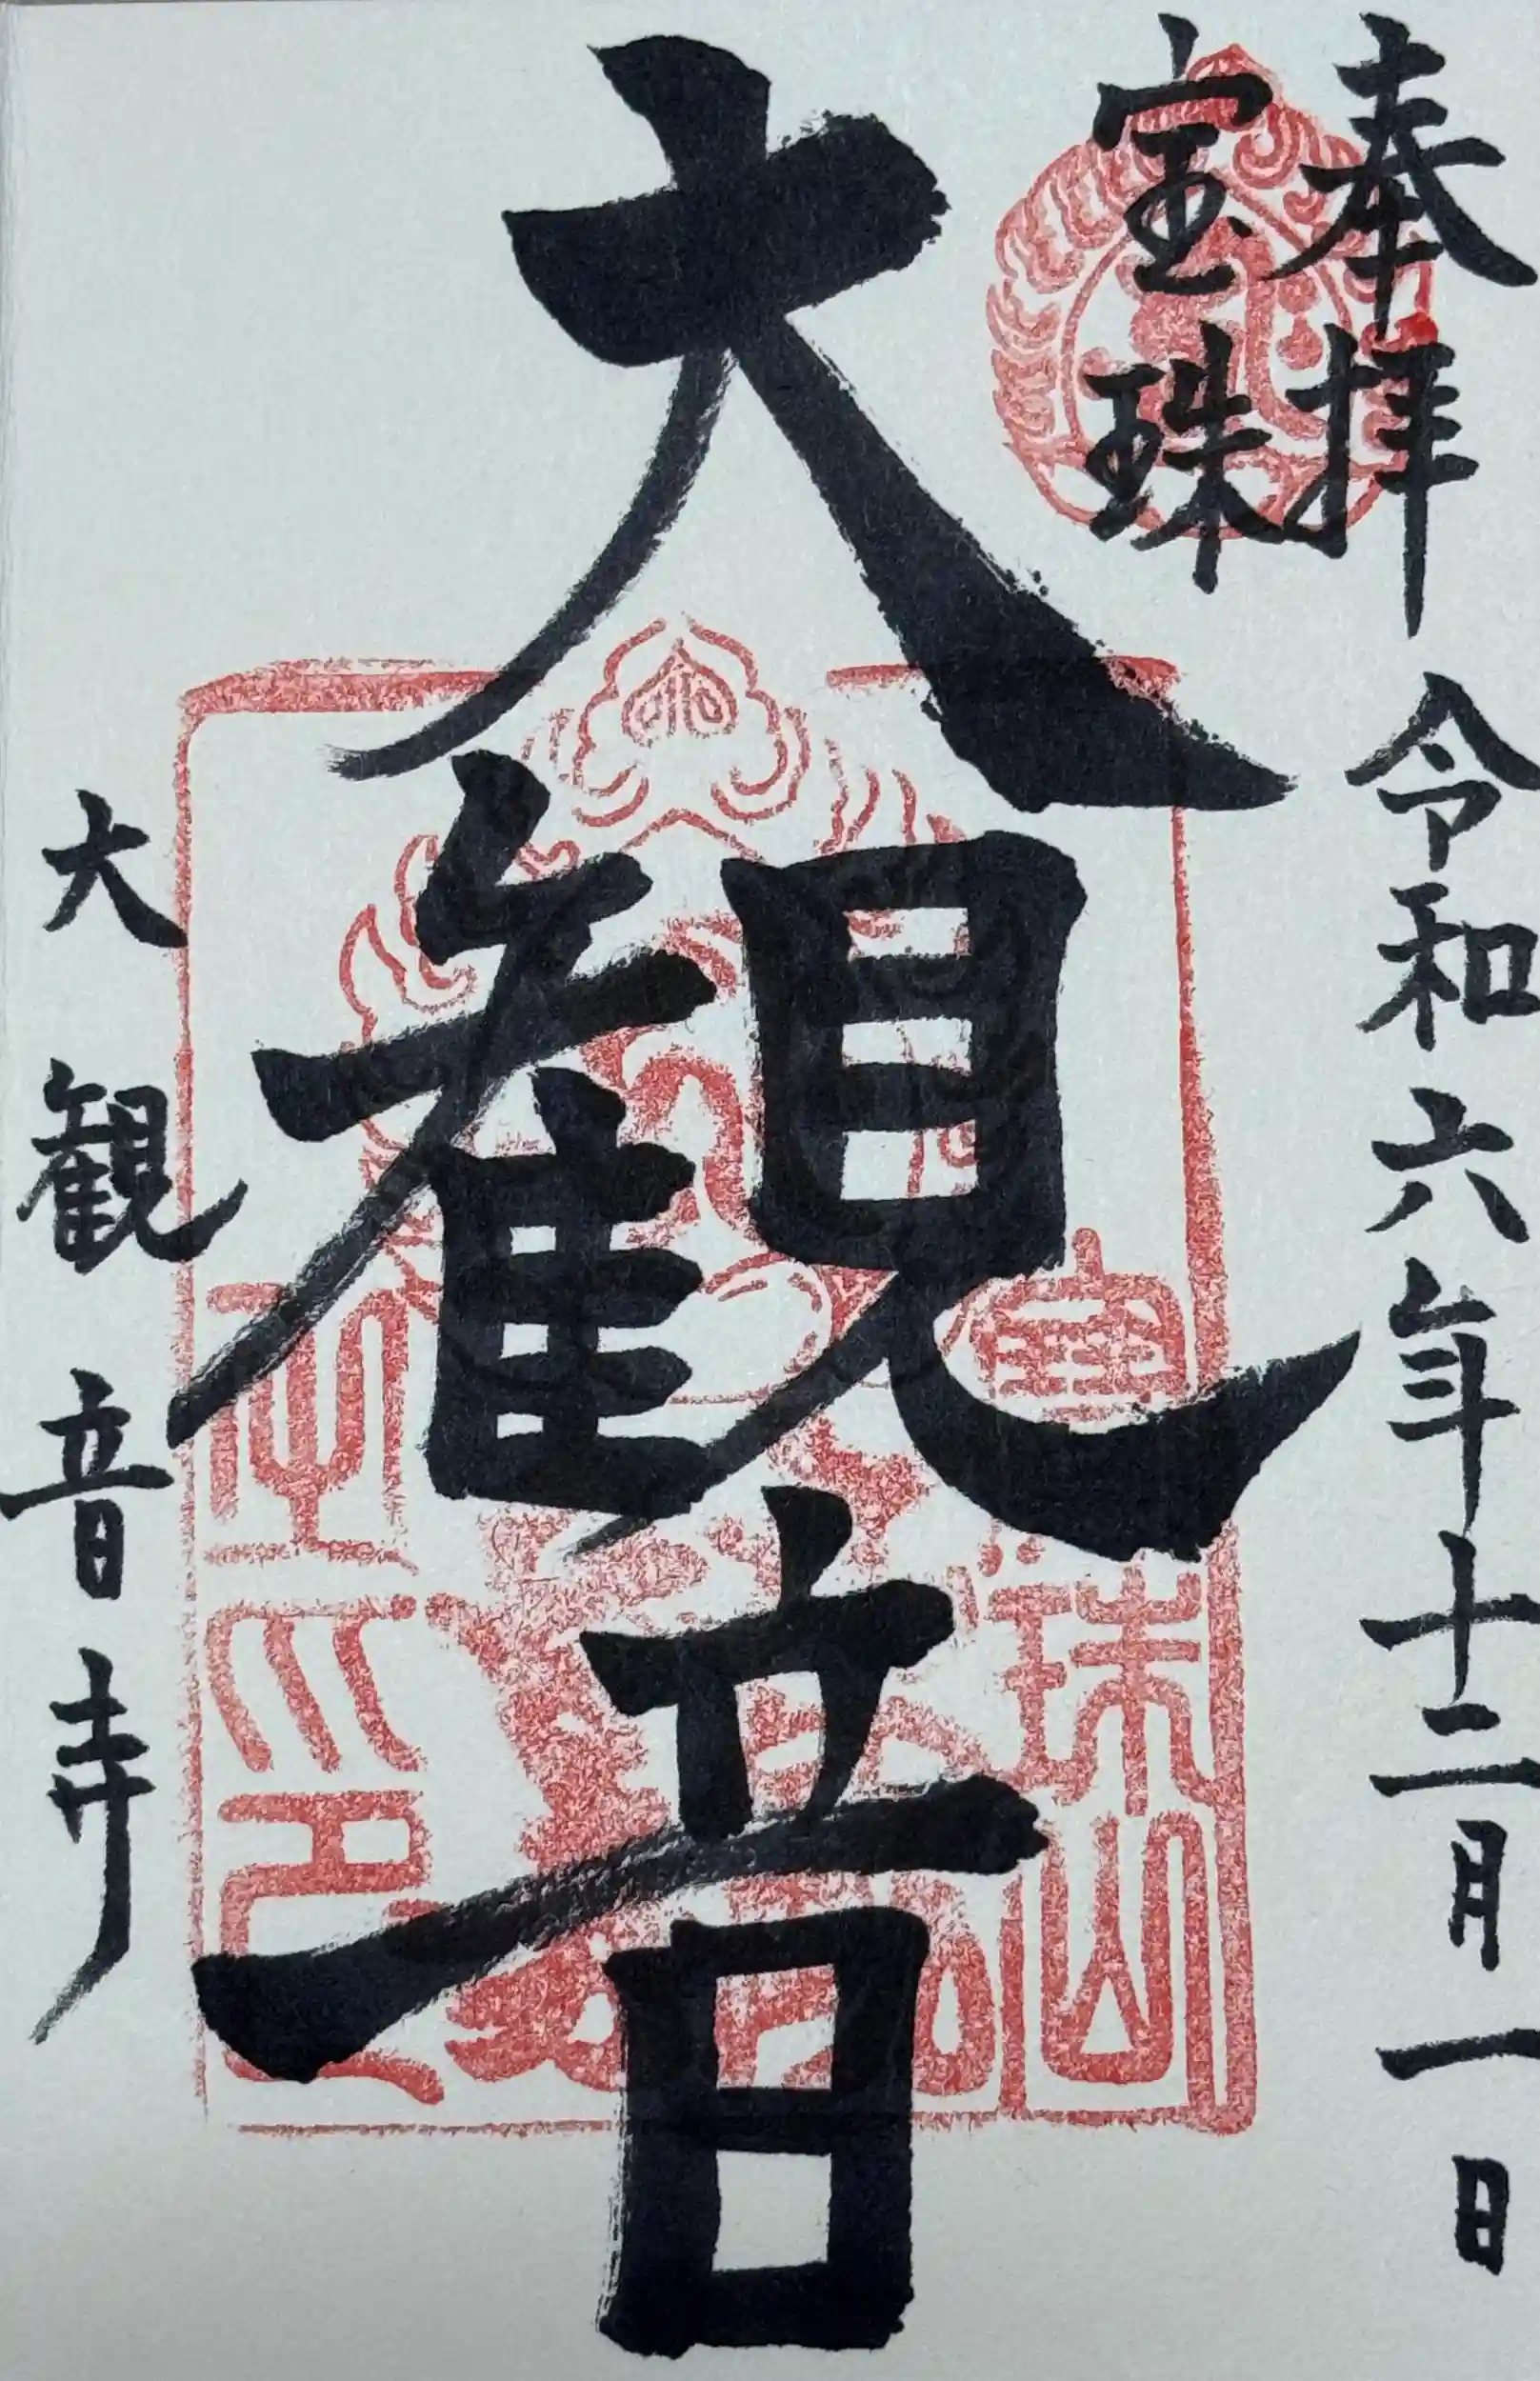 奉拝 令和六年十二月一日
宝珠
大観音
大観音寺